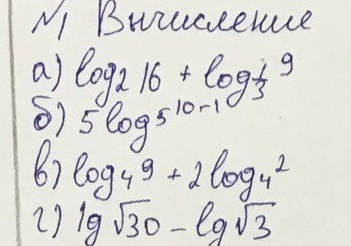 №1 Вычисление
а) log₂ 16 + log_{1/3} 9
б) 5 log₅ 10-1
в) log₄ 9 + 2 log₄ 2
г) lg √30 - lg √3